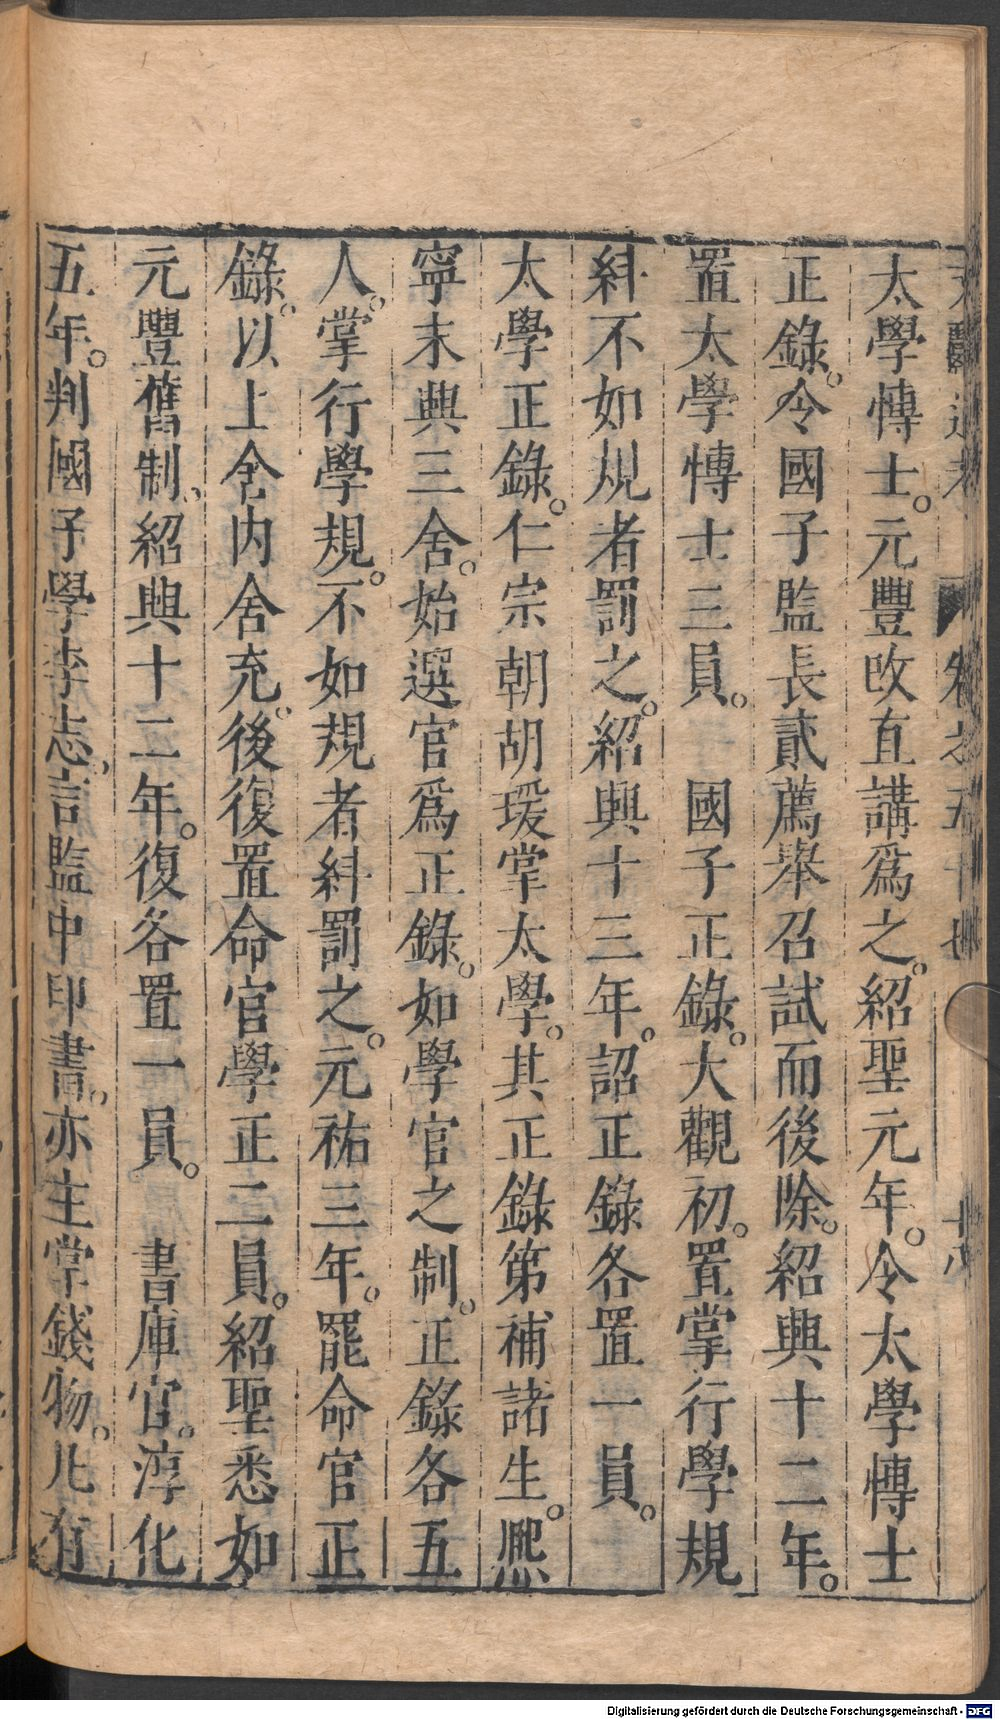 太學博士。元豐改直講爲之。紹聖元年。令太學博士
正錄。令國子監長貳薦舉召試而後除。紹興十二年。
置太學博士三員。　國子正錄。大觀初。置掌行學規
糾不如規者罰之。紹興十三年。詔正錄各置一員。
太學正錄。仁宗朝胡瑗掌太學。其正錄第補諸生。熈
寧末興三舍。始選官爲正錄。如學官之制。正錄各五
人。掌行學規。不如規者糾罰之。元祐三年。罷命官正
錄。以上舍内舍充。後復置命官學正二員。紹聖悉如
元豐舊制、紹興十二年。復各置一員。　書庫官。淳化
五年。判國子學李志、言監中印書。亦主掌錢物。凡有
卷之五十七
十八
Digitalisierung gefördert durch die Deutsche Forschungsgemeinschaft - DFG